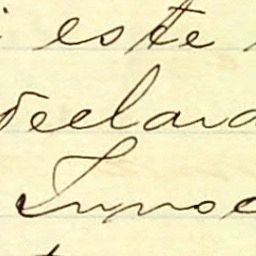 este
declara
Innoc